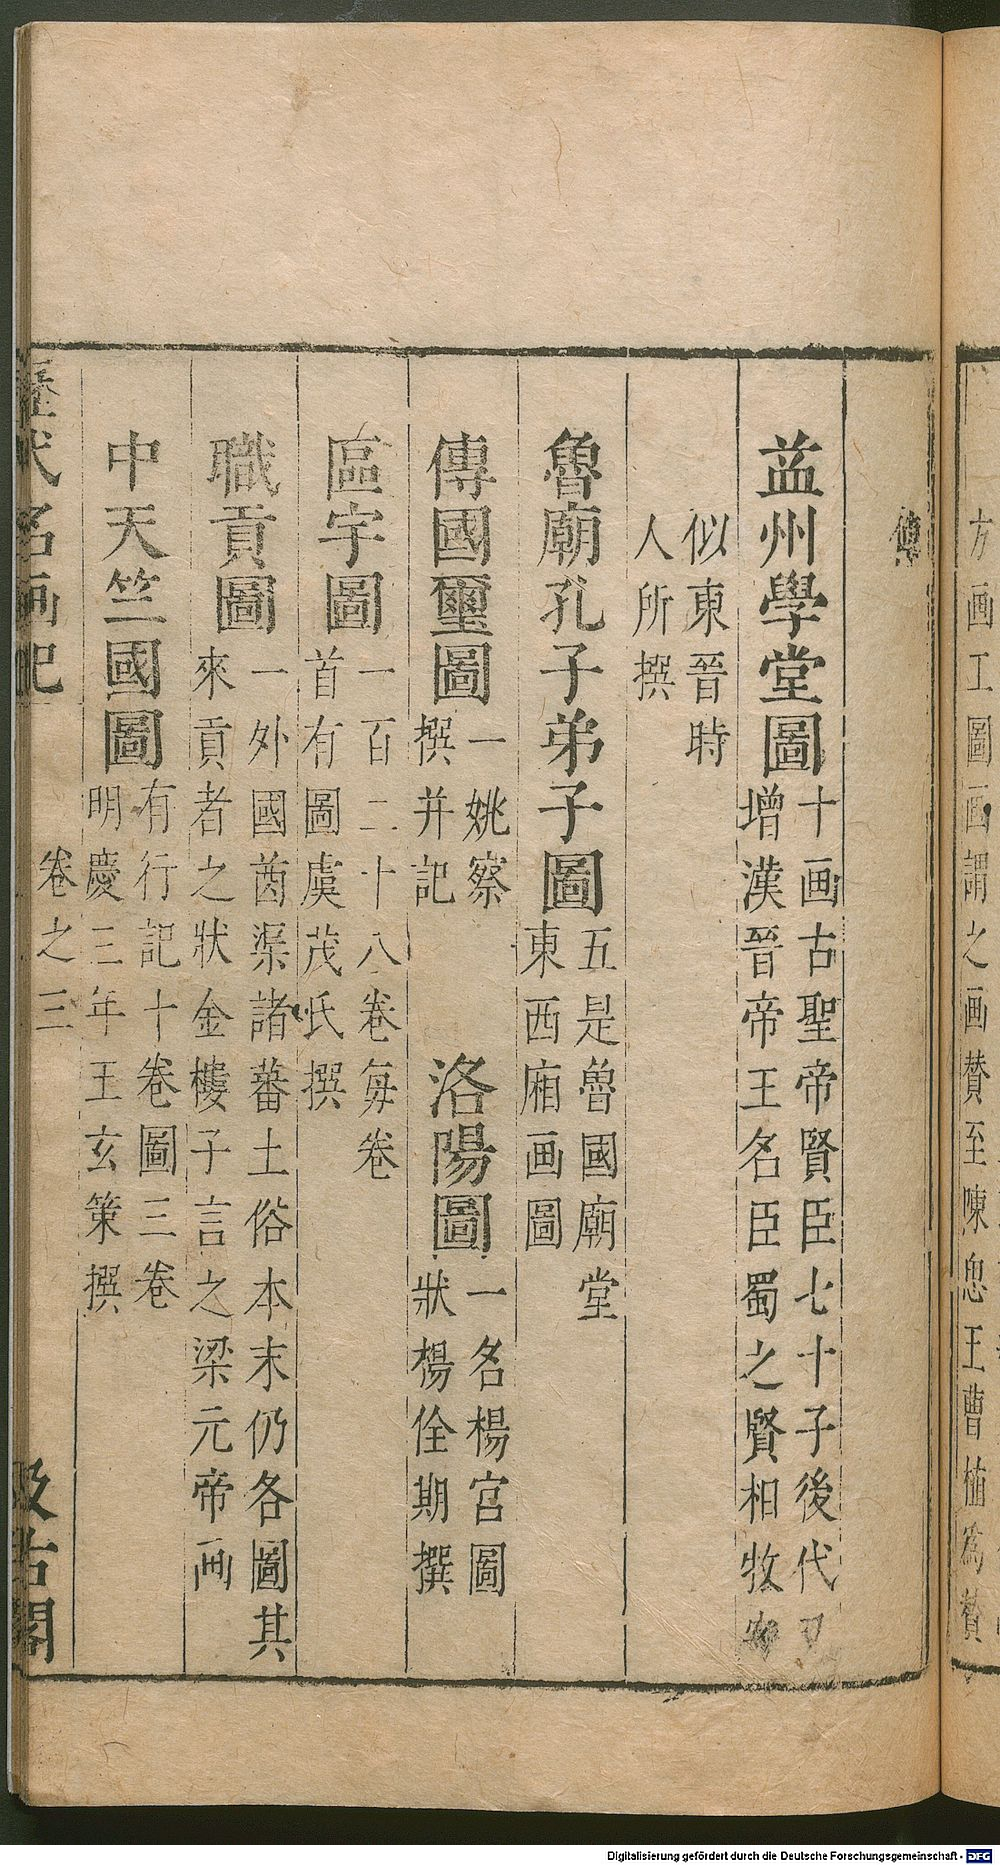 方画工圖画謂之画賛至陳思王曹植為賛
傳
益州學堂圖十画古聖帝賢臣七十子後代又
增漢晉帝王名臣蜀之賢相牧守
似東晉時
人所撰
魯廟孔子弟子圖五是魯國廟堂
東西廂画圖
傳國璽圖一姚察
撰并記
洛陽圖一名楊宮圖
狀楊佺期撰
區宇圖一百二十八卷每卷
首有圖虞茂氏撰
職貢圖一外國酋渠諸蕃土俗本末仍各圖其
來貢者之狀金樓子言之梁元帝画
中天竺國圖有行記十卷圖三卷
明慶三年王玄策撰
歷代名画記
卷之三
汲古閣
Digitalisierung gefördert durch die Deutsche Forschungsgemeinschaft - DFG